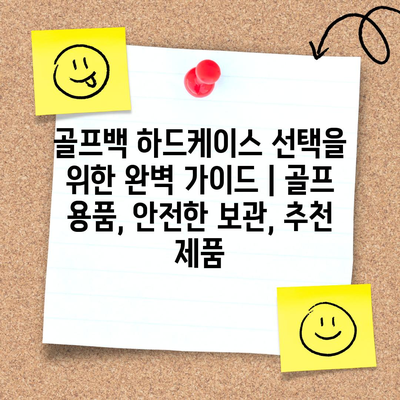 골프백 하드케이스 선택을
위한 완벽 가이드 | 골프
용품, 안전한 보관, 추천
제품